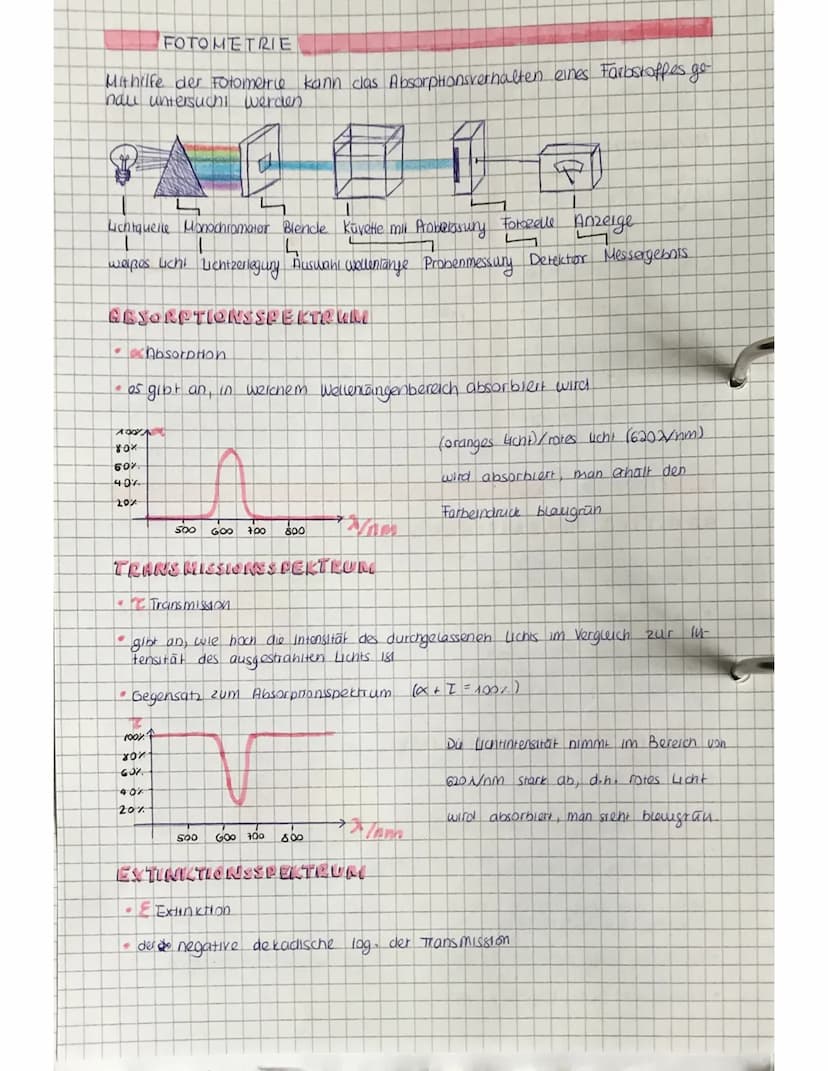 FOTOMETRIE
Mithilfe der Fotometrie kann das Absorptionsverhalten eines Farbstoffes ge-
nau untersucht werden
Lichtquelle Monochromator Blende Küvette mit Probelösung Fotozelle Anzeige
weißes Licht Lichtzerlegung Auswahl Wellenlänge Probenmessung Detektor Messergebnis
ABSORPTIONSSPEKTRUM
• α Absorption
• es gibt an, in welchem Wellenlängenbereich absorbiert wird
100% α
80%
60%
40%
20%
500 600 700 800 λ/nm
(oranges Licht)/rotes Licht (620λ/nm)
wird absorbiert, man erhält den
Farbeindruck blaugrün
TRANSMISSIONSSPEKTRUM
• τ Transmission
• gibt an, wie hoch die Intensität des durchgelassenen Lichts im Vergleich zur In-
tensität des ausgestrahlten Lichts ist
• Gegensatz zum Absorptionsspektrum (α + τ = 100%)
τ
100%
80%
60%
40%
20%
500 600 700 800 λ/nm
Die Lichtintensität nimmt im Bereich von
620λ/nm stark ab, d.h. rotes Licht
wird absorbiert, man sieht blaugrün.
EXTINKTIONSSPEKTRUM
• E Extinktion
• der negative dekadische log. der Transmission